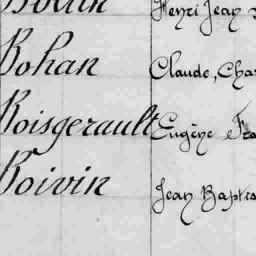 Henri Jean
Bohan Claude, Cha
Boisgerault Eugène Fra
Boivin Jean Baptis